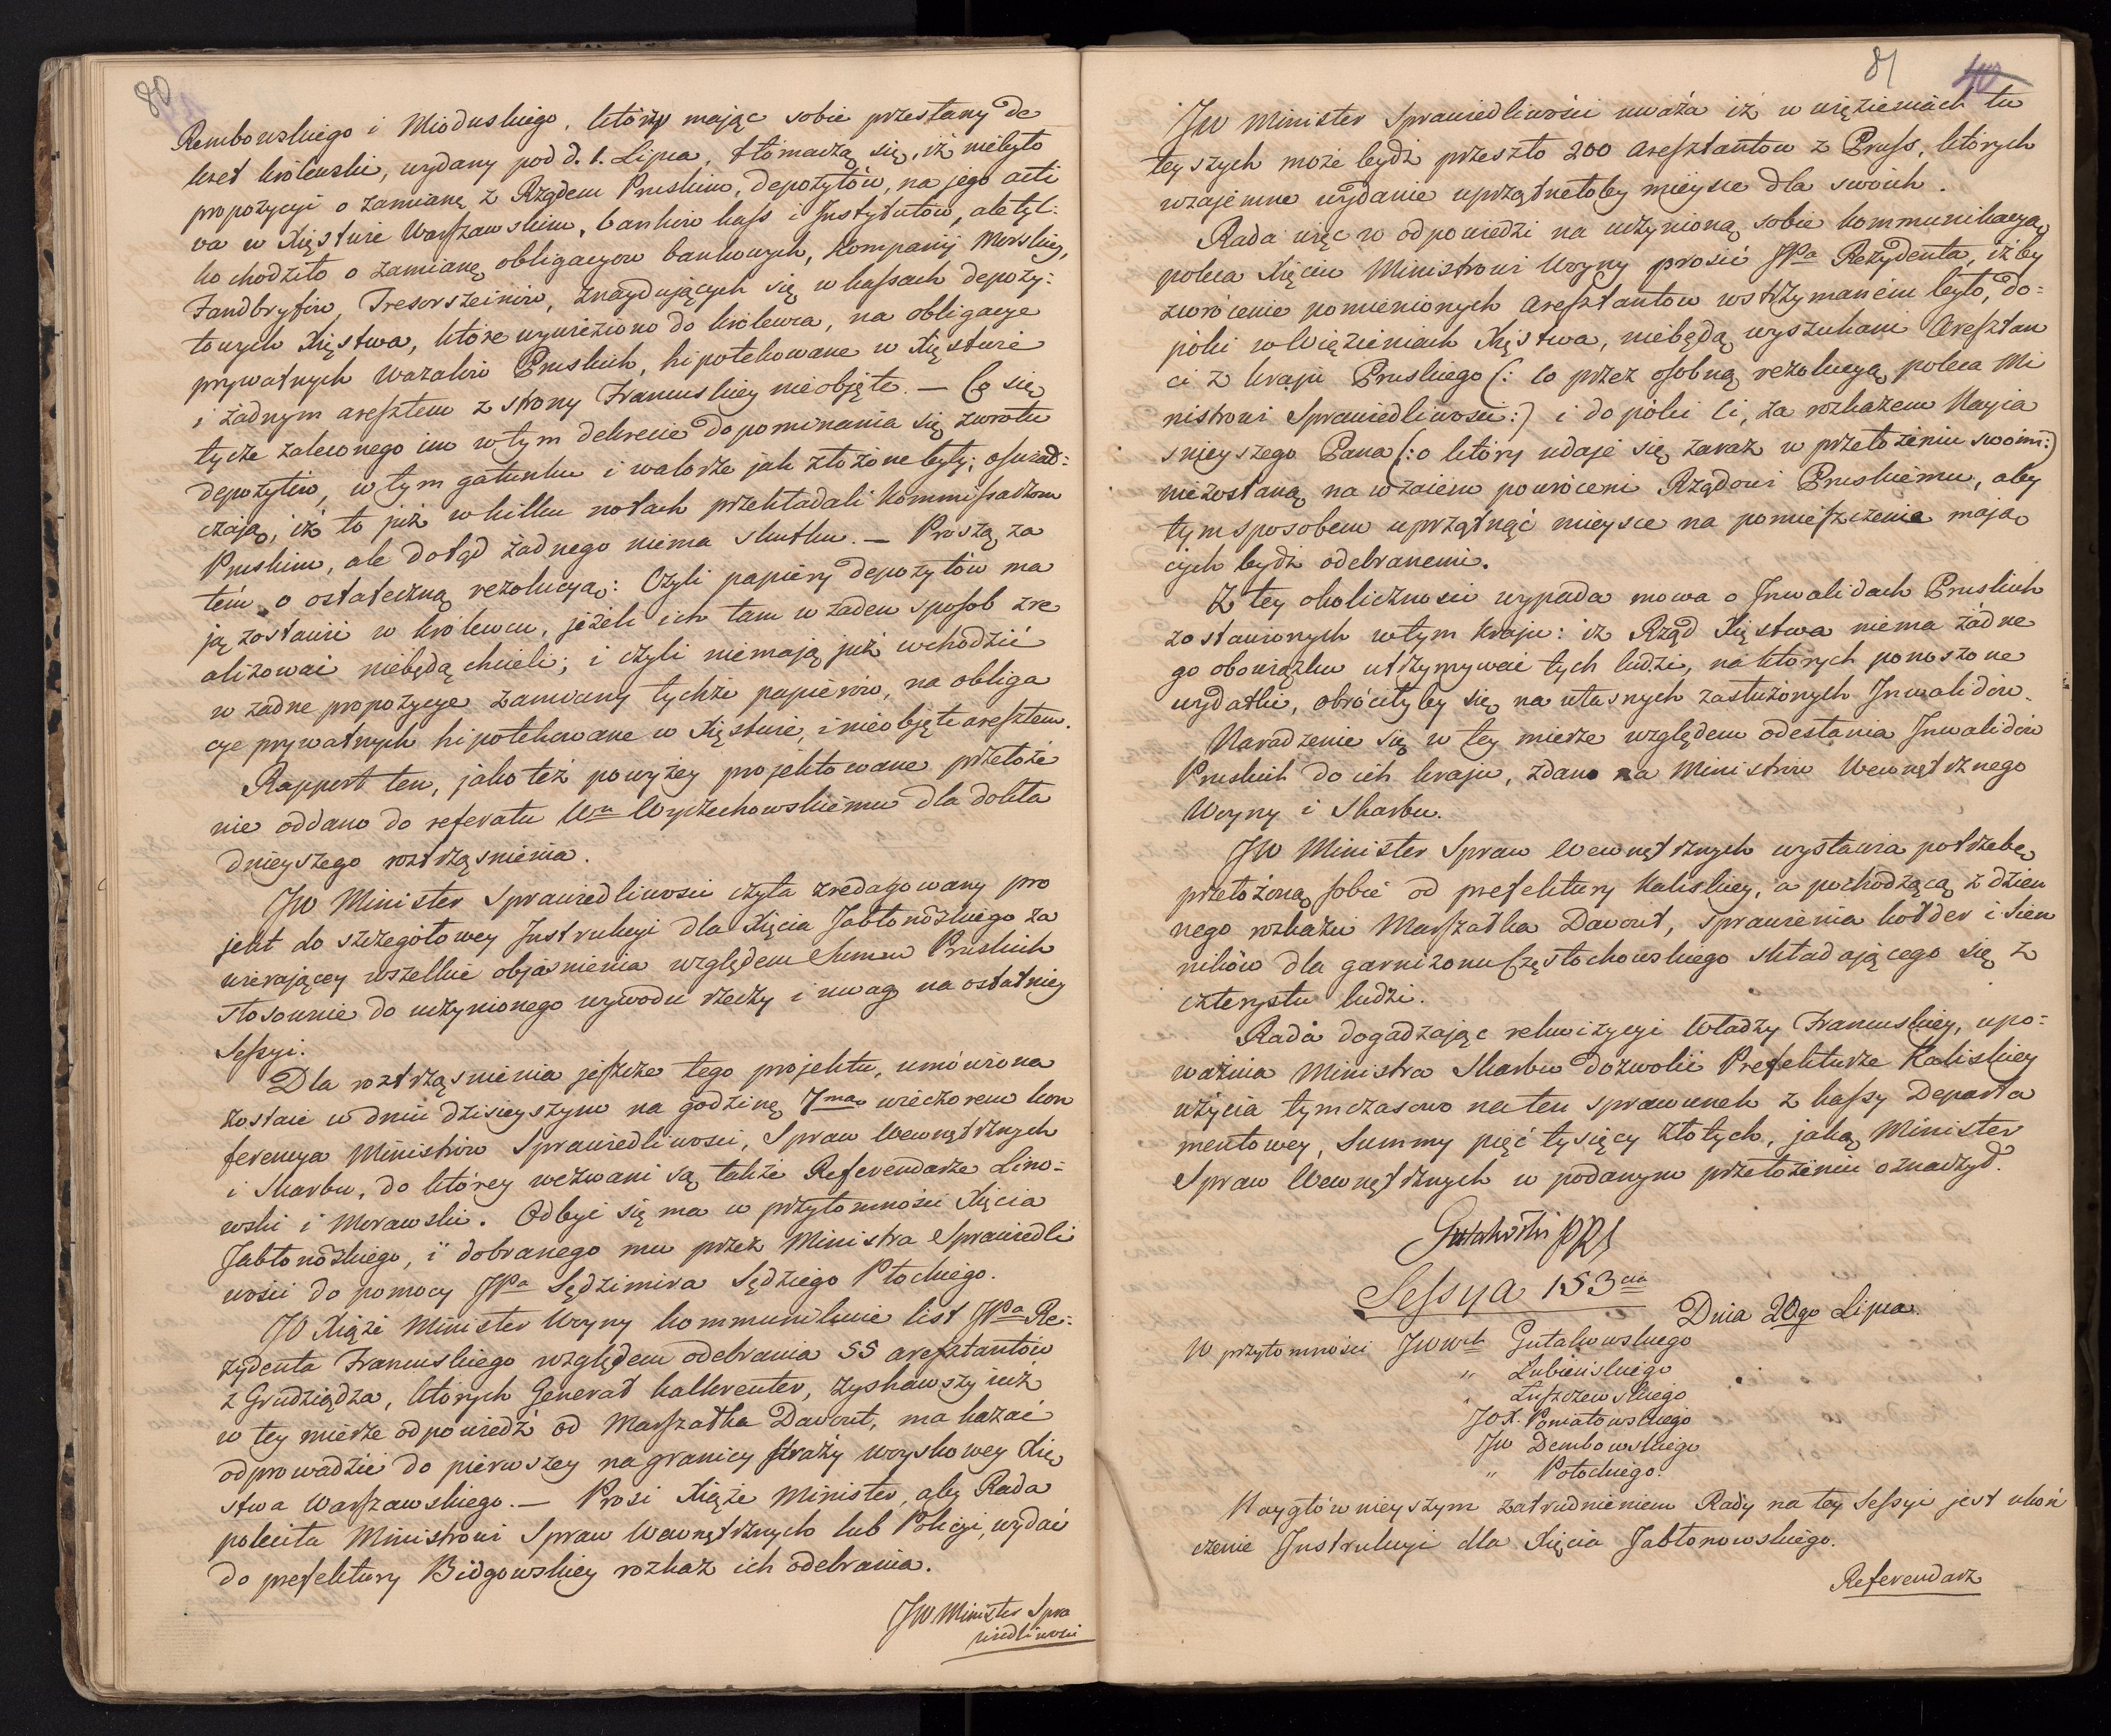 80
Rembowskiego i Mioduskiego, którzy mając sobie przesłany De
kret królewski, wydany pod d. 1. Lipca, tłomaczą się, iż niebyło
propozycyi o zamianę z Rządem Pruskim, depozytów, na jego acti
va w Xięstwie Warszawskim, banków kass i Instytutów, ale tyl:
ko chodziło o zamianę obligacyow bankowych, Kompanij Morskiey,
Fandbryfów, Tresorszeinów, znaydujących się w kassach depozy:
towych Xięstwa, które wywieziono do królewca, na obligacye
prywatnych wazalów Pruskich, hipotekowane w Xięstwie
i żadnym aresztem z strony Francuskiey nieobjęte. — Co się
tycze zaleconego im w tym dekrecie dopominania się zwrotu
depozytów, w tym gatunku i walorze jak złożone były; oświad:
czają, iż to już w kilku notach przekładali Kommissarzom
Pruskim, ale dotąd żadnego niema skutku. — Proszą za
tém o ostateczną rezolucyą: Czyli papiery depozytów ma
ją zostawić w królewcu, jeżeli ich tam w żaden sposob zre
alizować niebędą chcieli; i czyli niemają już wchodzić
w żadne propozycye zamiany tychże papierów, na obliga
cye prywatnych hipotekowane w Xięstwie, i nieobjęte aresztem.
Rapport ten, jako też powyżey projektowane przełoże
nie oddano do referatu Wu Wyczechowskiému dla dokła
dnieyszego roztrząśnienia.
JW Minister Sprawiedliwości czyta zredagowany pro
jekt do szczegółowey Instrukcyi dla Xięcia Jabłonowskiego za
wierającey wszelkie objaśnienia względem Summ Pruskich
stosownie do uczynionego wywodu rzeczy i uwag na ostatniey
Sessyi.
Dla roztrząśnienia jeszcze tego projektu, umówiona
zostaie w dniu dzisieyszym na godzinę 7mą wieczorem kon
ferencya Ministrów Sprawiedliwości, Spraw Wewnętrznych
i Skarbu, do którey wezwani są także Referendarze Lino=
wski i Morawski. Odbyć się ma w przytomności Xięcia
Jabłonowskiego, i dobranego mu przez Ministra Sprawiedli
wości do pomocy JPa Sędzimira Sędziego Płockiego.
JO Xiąże Minister Woyny kommunikuie list JPa Re:
zydenta Francuskiego względem odebrania 55 aresztantów
z Grudziądza, których Generał Kalkreuter, zyskawszy iuż
w tey mierze odpowiedź od Marszałka Davout, ma kazać
odprowadzić do pierwszey na granicy straży woyskowey Xię
stwa Warszawskiego. — Prosi Xiąże Minister, aby Rada
poleciła Ministrowi Spraw Wewnętrznych lub Policyi, wydać
do prefektury Bidgowskiey rozkaz ich odebrania.
JW Minister Spra
wiedliwości
81
40
JW Minister Sprawiedliwości uważa iż w więzieniach tu
teyszych może bydź przeszło 200 aresztantów z Pruss, których
wzajemne wydanie uprzątnęłoby mieysce dla swoich.
Rada więc w odpowiedzi na uczynioną sobie kommunikacyą
poleca Xięciu Ministrowi Woyny prosić JPa Rezydenta, iżby
zwrócenie pomienionych aresztantów wstrzymaném było, do=
póki w Więzieniach Xięstwa, niebędą wyszukani Aresztan
ci z kraju Pruskiego (: co przez osobną rezolucyą poleca Mi
nistrowi Sprawiedliwości :) i dopóki ci, za rozkazem Nayja
śnieyszego Pana (: o który udaje się zaraz w przełożeniu swoim :)
niezostaną na wzaiem powróceni Rządowi Pruskiému, aby
tym sposobem uprzątnąć mieysce na pomieszczenie mają
cych bydź odebranemi.
Z tey okoliczności wypada mowa o Inwalidach Pruskich
zostawionych w tym kraju: iż Rząd Xięstwa niema żadne
go obowiązku utrzymywać tych ludzi, na których ponoszone
wydatki, obróciłyby się na własnych zasłużonych Inwalidów.
Naradzenie się w tey mierze względem odesłania Inwalidów
Pruskich do ich kraju, zdano na Ministrów Wewnętrznego
Woyny i Skarbu.
JW Minister Spraw Wewnętrznych wystawia potrzebę
przełożoną sobie od prefektury Kaliskiey, a pochodzącą z dzien
nego rozkazu Marszałka Davout, sprawienia kołder i sien
ników dla garnizonu Częstochowskiego składającego się z
czterystu ludzi.
Rada dogadzając rekwizycyi Władzy Francuskiey, upo=
ważnia Ministra Skarbu dozwolić Prefekturze Kaliskiey
użycia tymczasowo na ten sprawunek z kassy Departa
mentowey, Summy pięć tysięcy złotych, jaką Minister
Spraw Wewnętrznych w podanym przełożeniu oznaczył.
Gutakowski PRS
Sessya 153cia
Dnia 20go Lipca.
W przytomności JWWch Gutakowskiego
" Łubieńskiego
" Łuszczewskiego
JOX. Poniatowskiego
JW Dembowskiego
" Potockiego.
Naygłównieyszym zatrudnieniem Rady na tey Sessyi jest ukoń
czenie Instrukcyi dla Xięcia Jabłonowskiego.
Referendarz